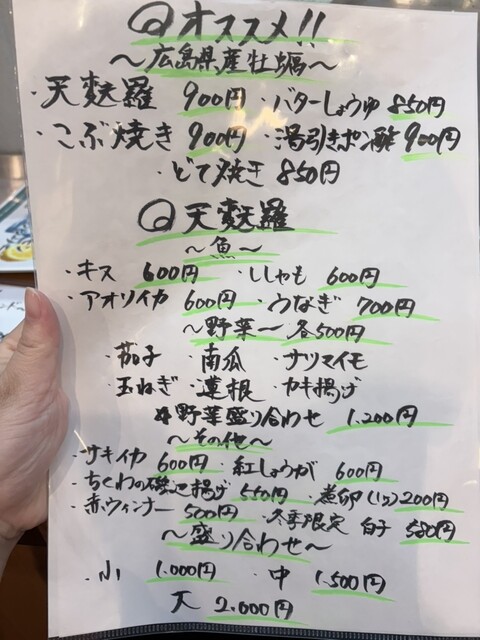 ◎オススメ!!
～広島県産牡蠣～
・天麩羅 900円 ・バターしょうゆ 850円
・こぶ焼き 900円 ・湯引きポン酢 900円
・どて焼き 850円
◎天麩羅
～魚～
・キス 600円 ・ししゃも 600円
・アオリイカ 600円 ・うなぎ 700円
～野菜～ 各500円
・茄子 ・南瓜 ・サツマイモ
・玉ねぎ ・蓮根 ・カキ揚げ
☆野菜盛り合わせ 1,200円
～その他～
・サキイカ 600円 ・紅しょうが 600円
・ちくわの磯辺揚げ 550円 ・煮卵(1ヶ)200円
・赤ウィンナー 500円 ・冬季限定 白子 580円
～盛り合わせ～
・小 1.000円 ・中 1.500円
大 2.000円